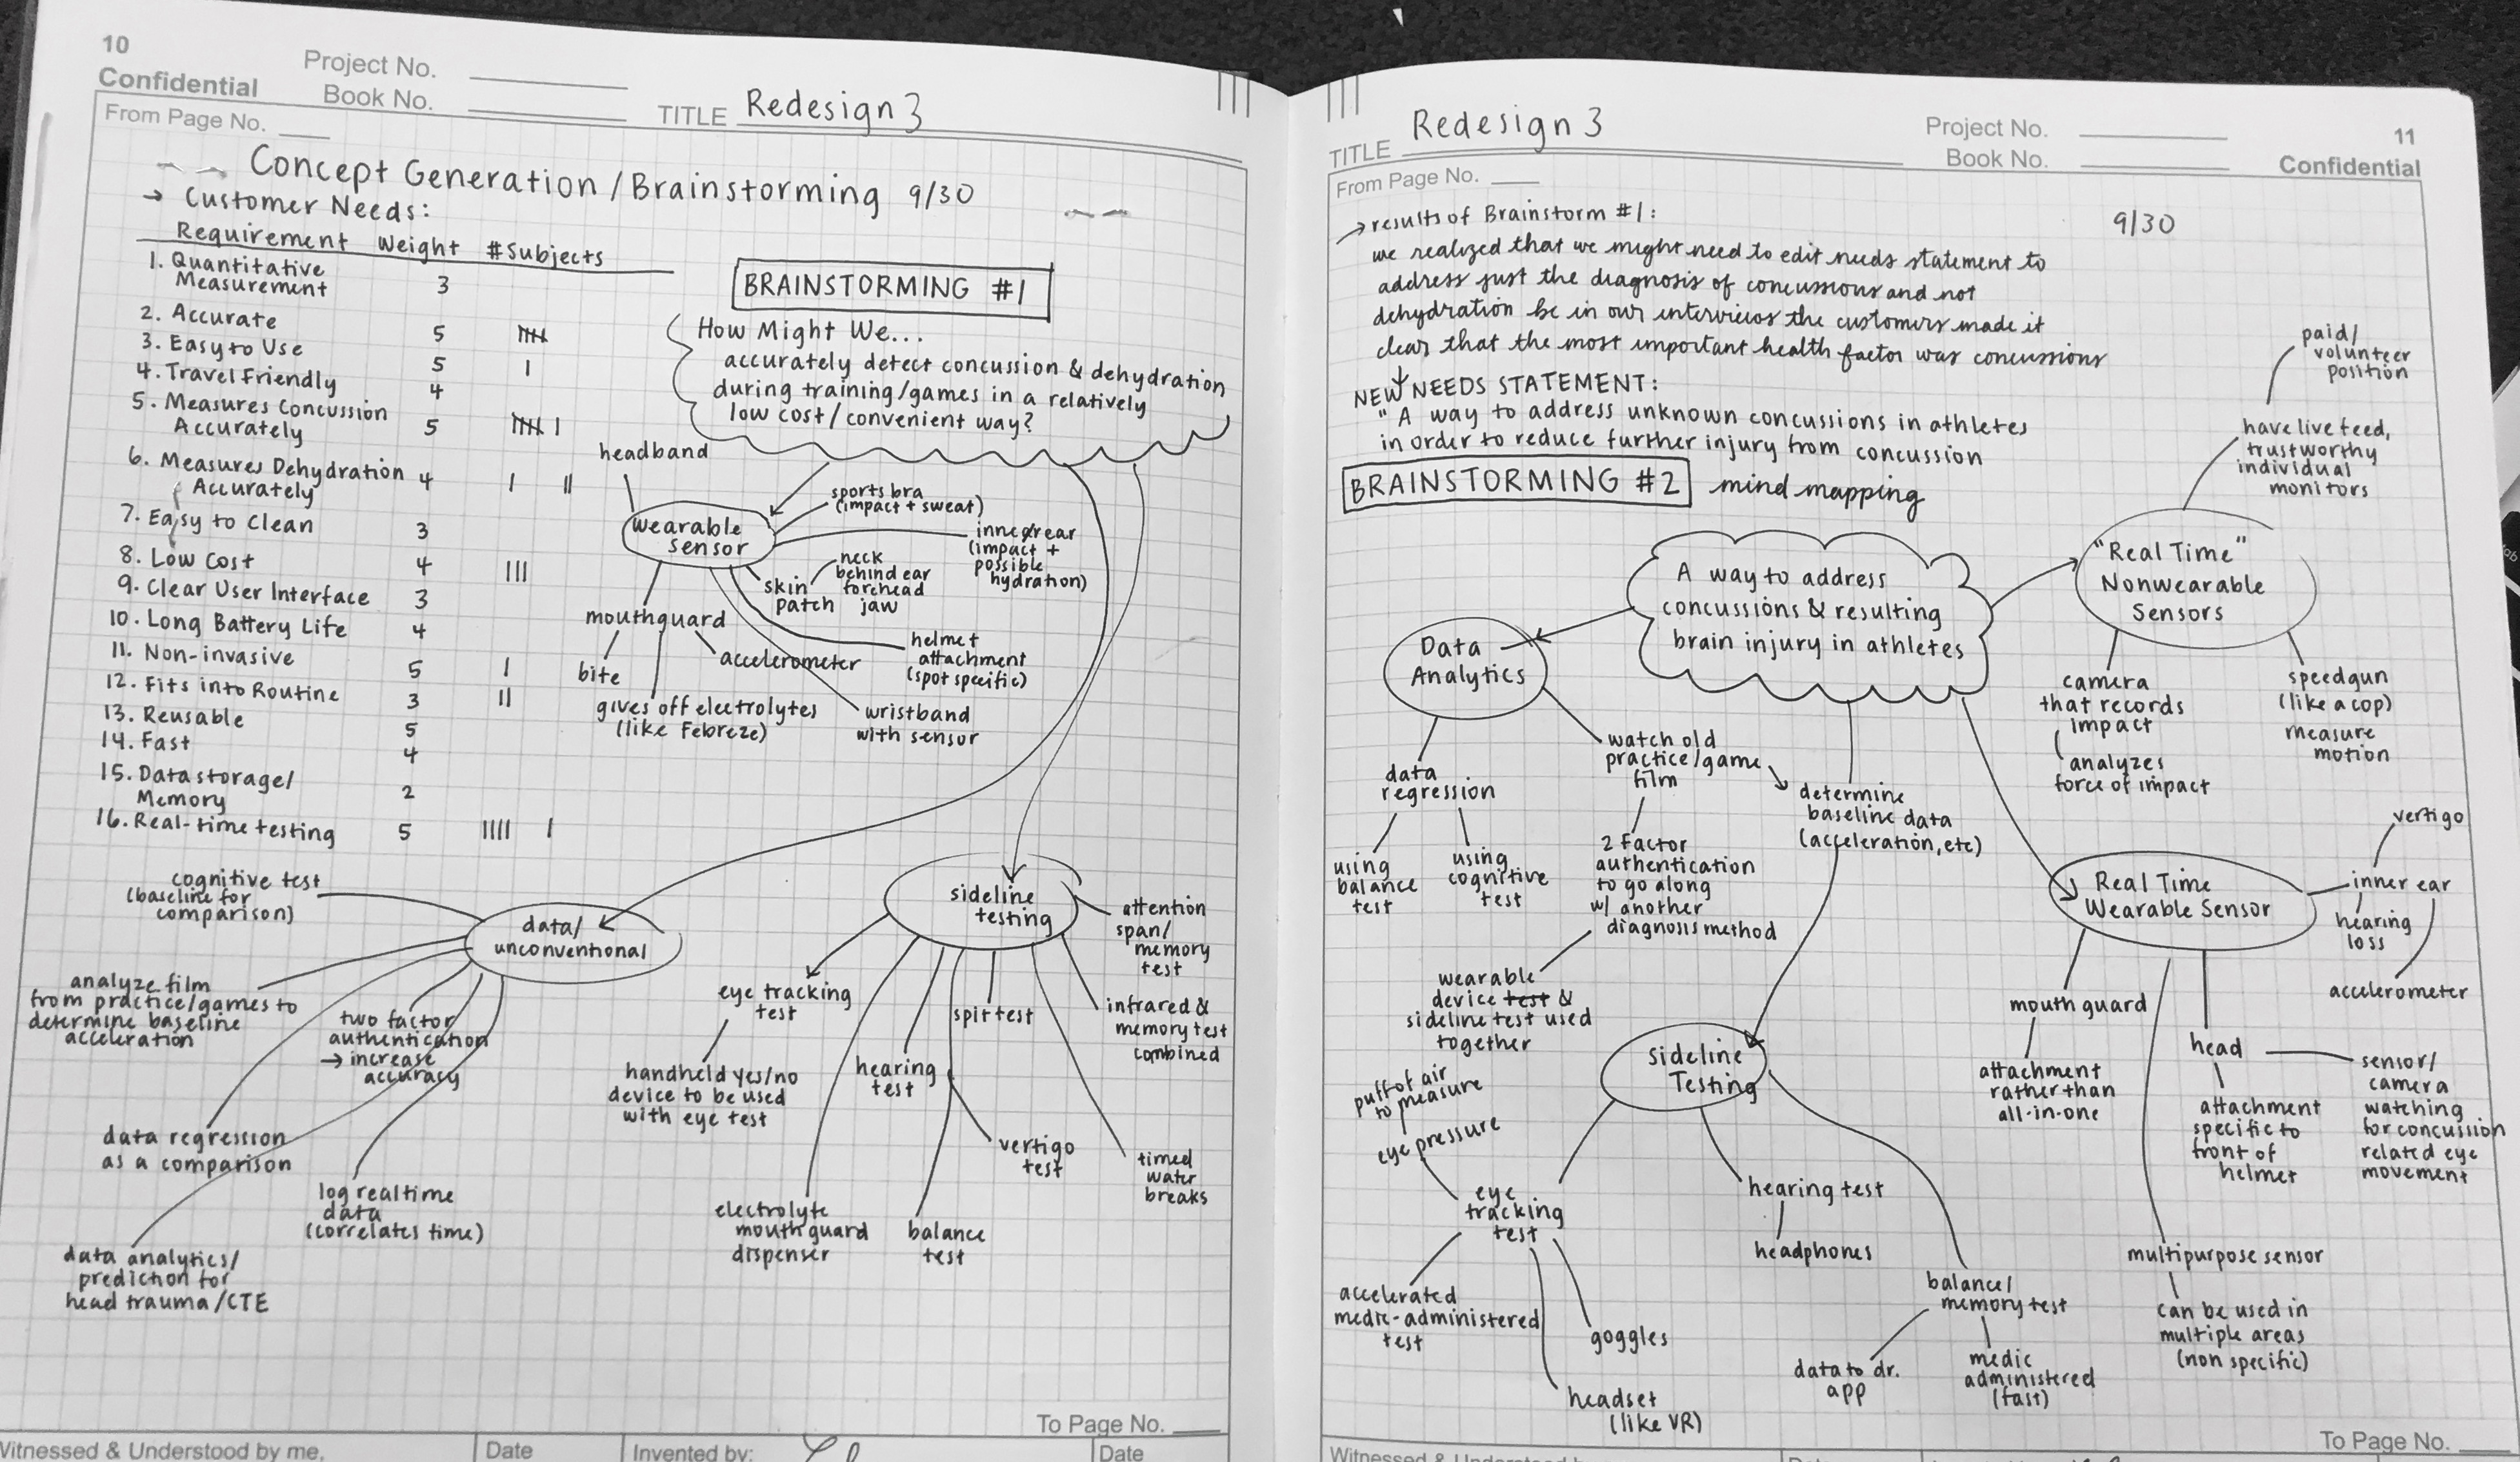 10
Confidential
Project No.
Book No.
TITLE Redesign 3
From Page No.
Concept Generation / Brainstorming 9/30
→ Customer Needs:
Requirement Weight #Subjects
1. Quantitative
Measurement 3
2. Accurate 5
3. Easy to Use 5 |
4. Travel Friendly 4
5. Measures Concussion
Accurately 5 |
6. Measures Dehydration
Accurately 4 | ||
7. Easy to Clean 3
8. Low Cost 4 |||
9. Clear User Interface 3
10. Long Battery Life 4
11. Non-invasive 5 |
12. Fits into Routine 3 ||
13. Reusable 5
14. Fast 4
15. Data storage/
Memory 2
16. Real-time testing 5 |||| |
BRAINSTORMING #1
How Might We...
accurately detect concussion & dehydration
during training/games in a relatively
low cost/convenient way?
headband
wearable
sensor
sports bra
(impact + sweat)
inner ear
(impact +
possible
hydration)
skin
patch
neck
behind ear
forehead
jaw
mouthguard
bite
accelerometer
gives off electrolytes
(like Febreze)
helmet
attachment
(spot specific)
wristband
with sensor
data/
unconventional
cognitive test
(baseline for
comparison)
analyze film
from practice/games to
determine baseline
acceleration
two factor
authentication
→ increase
accuracy
data regression
as a comparison
log realtime
data
(correlates time)
data analytics/
prediction for
head trauma/CTE
sideline
testing
eye tracking
test
handheld yes/no
device to be used
with eye test
hearing
test
spit test
attention
span/
memory
test
infrared &
memory test
combined
vertigo
test
timed
water
breaks
electrolyte
mouthguard
dispenser
balance
test
To Page No.
Witnessed & Understood by me,
Date
Invented by:
Date
TITLE Redesign 3
Project No.
Book No.
11
Confidential
From Page No.
→ results of Brainstorm #1:
9/30
we realized that we might need to edit needs statement to
address just the diagnosis of concussions and not
dehydration bc in our interviews the customers made it
clear that the most important health factor was concussions
NEW NEEDS STATEMENT:
"A way to address unknown concussions in athletes
in order to reduce further injury from concussion
BRAINSTORMING #2 mind mapping
A way to address
concussions & resulting
brain injury in athletes
"Real Time"
Nonwearable
Sensors
have live feed,
trustworthy
individual
monitors
paid/
volunteer
position
camera
that records
impact
analyzes
force of impact
speedgun
(like a cop)
measure
motion
Data
Analytics
data
regression
using
balance
test
using
cognitive
test
watch old
practice/game
film
2 Factor
authentication
to go along
w/ another
diagnosis method
wearable
device test &
sideline test used
together
determine
baseline data
(acceleration, etc)
Real Time
Wearable Sensor
inner ear
vertigo
hearing
loss
accelerometer
mouth guard
attachment
rather than
all-in-one
head
attachment
specific to
front of
helmet
sensor/
camera
watching
for concussion
related eye
movement
multipurpose sensor
can be used in
multiple areas
(non specific)
Sideline
Testing
puff of air
to measure
eye pressure
eye
tracking
test
accelerated
medic-administered
test
goggles
headset
(like VR)
hearing test
headphones
balance/
memory test
data to dr.
app
medic
administered
(fast)
To Page No.